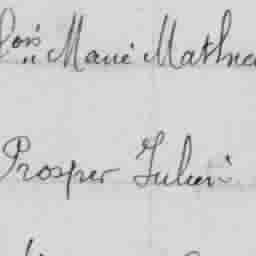 Marie Mathieu
Prosper Julien